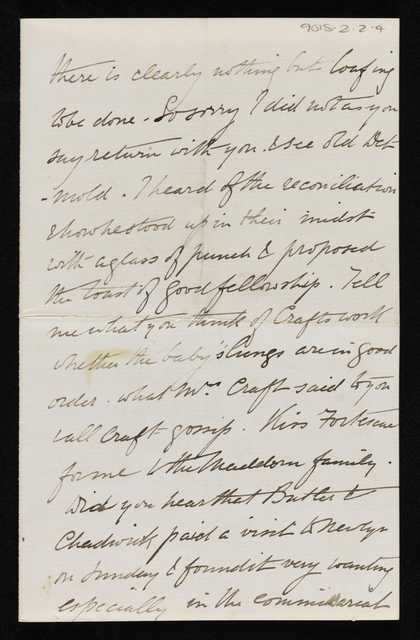 9015-2-2-9
there is clearly nothing but loafing
to be done - So sorry I did not as you
say return with you & see old Det-
-mold. I heard of the reconciliation
& how he stood up in their midst
with a glass of punch & proposed
the toast of good fellowship. Tell
me what you think of Crafts work
whether the baby's lungs are in good
order. what Mrs Craft said to you
& all Craft gossip. Kiss Fortescue
for me & the Maddern family.
Did you hear that Butler &
Chadwick paid a visit to Newlyn
on Sunday & found it very wanting
especially in the commissariat